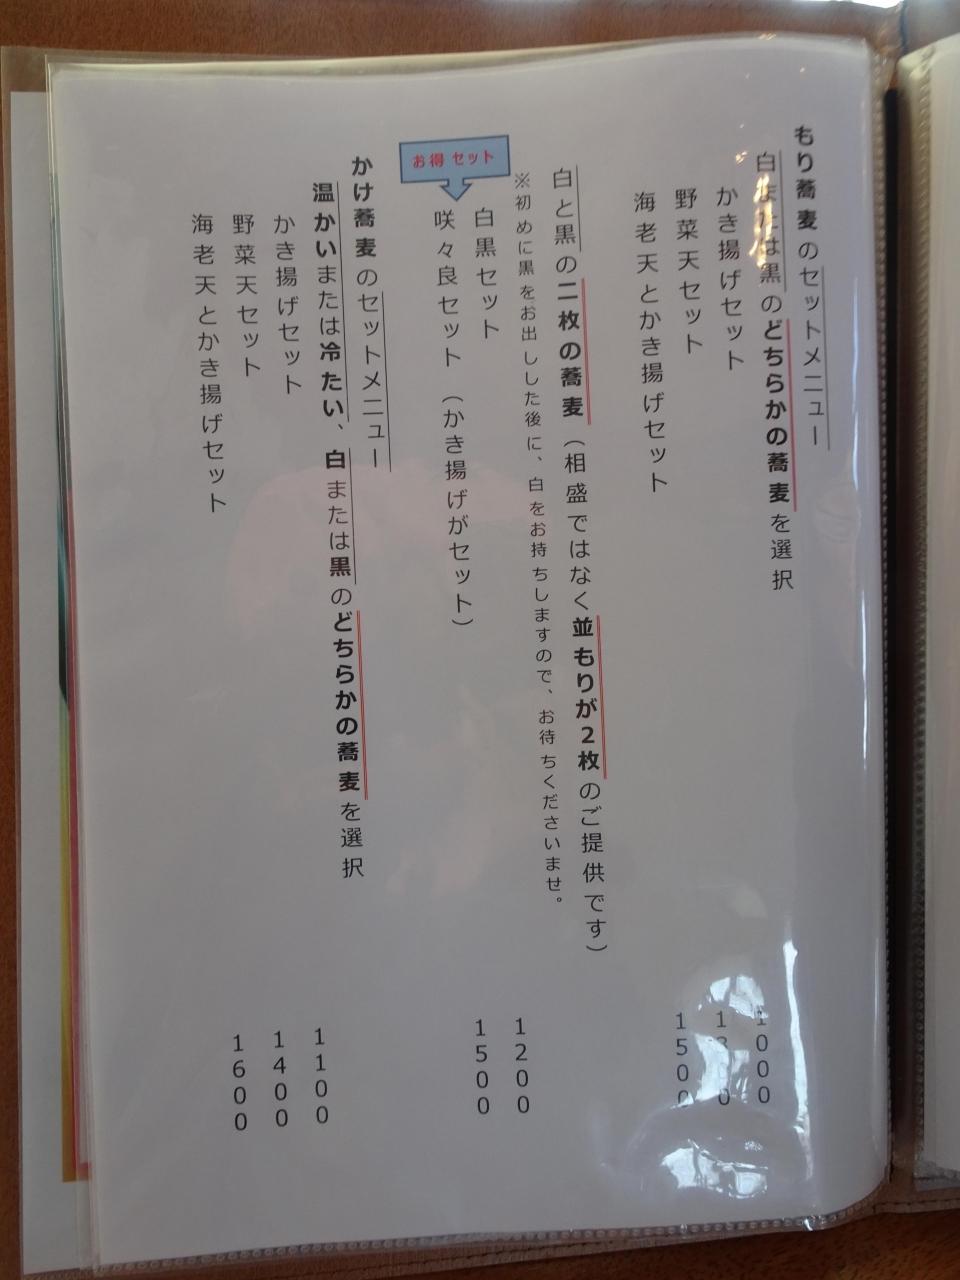 もり蕎麦のセットメニュー
白または黒のどちらかの蕎麦を選択
かき揚げセット 1000
野菜天セット
海老天とかき揚げセット 1500
白と黒の二枚の蕎麦（相盛ではなく並もりが2枚のご提供です）
※初めに黒をお出しした後に、白をお持ちしますので、お待ちくださいませ。
白黒セット 1200
お得 セット
咲々良セット（かき揚げがセット） 1500
かけ蕎麦のセットメニュー
温かいまたは冷たい、白または黒のどちらかの蕎麦を選択
かき揚げセット 1100
野菜天セット 1400
海老天とかき揚げセット 1600